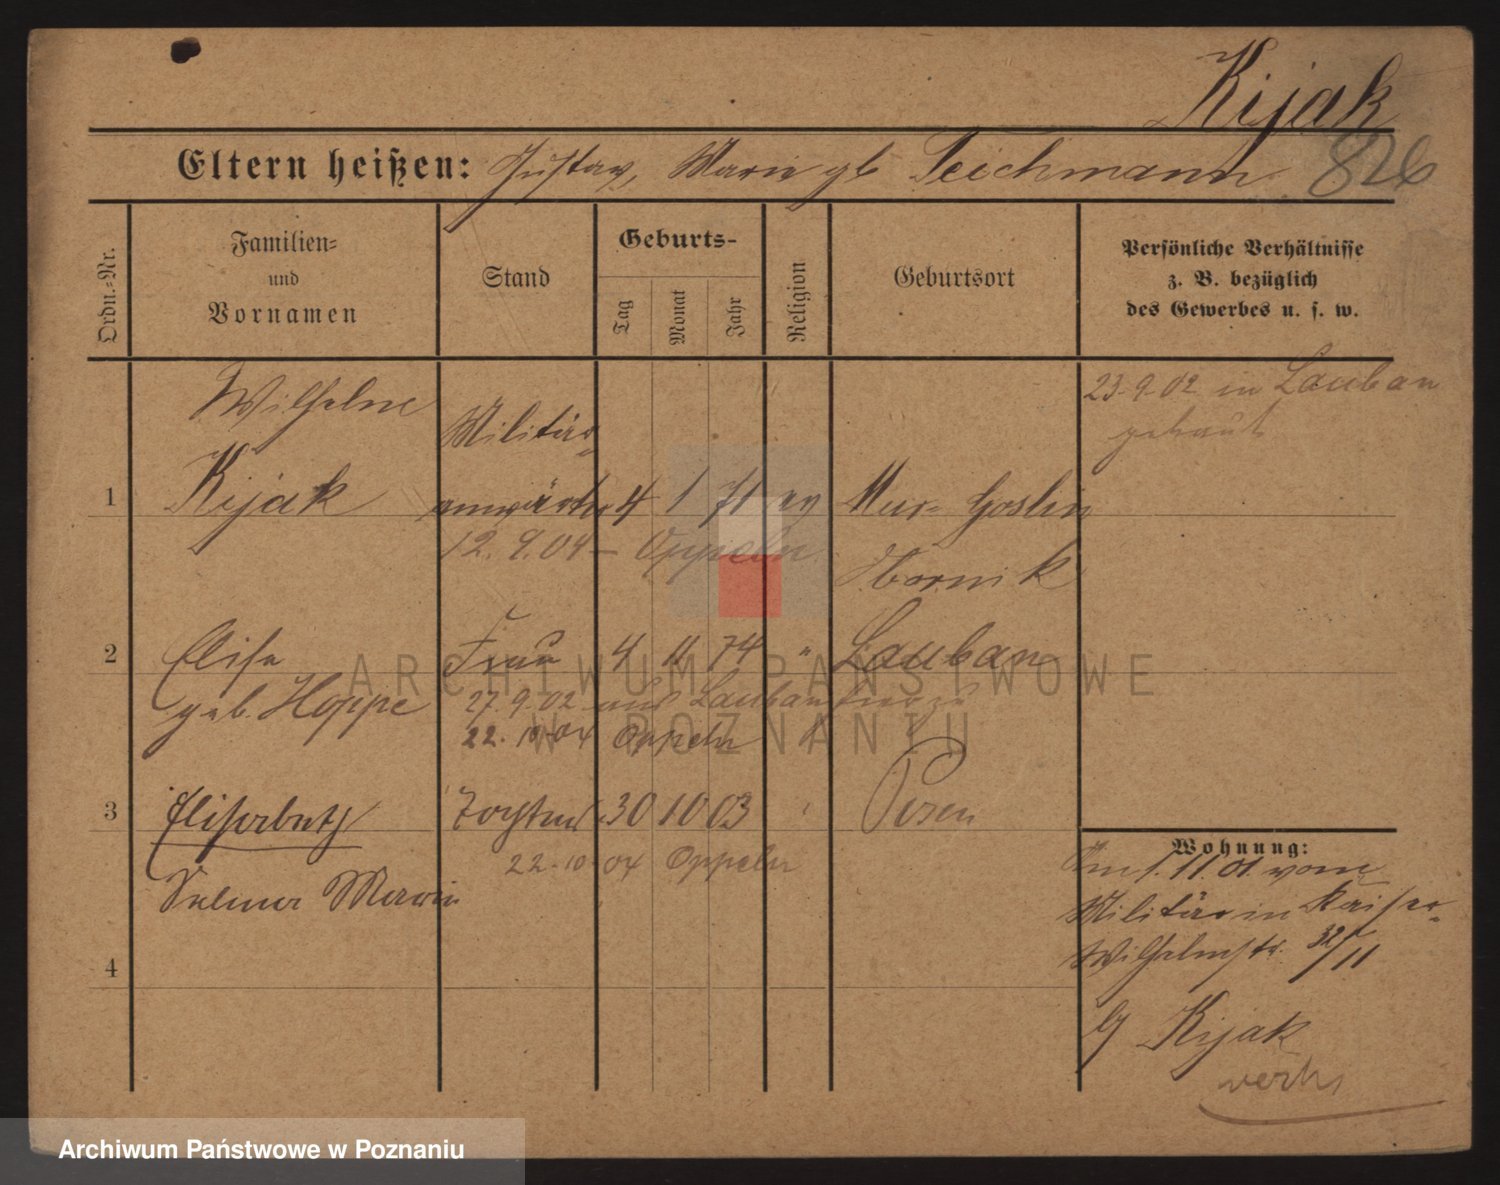 Kijak
826
Eltern heißen: Gustav, Marie gb Teichmann
Ordn.-Nr.
Familien-
und
Vornamen
Stand
Geburts-
Tag
Monat
Jahr
Religion
Geburtsort
Persönliche Verhältnisse
z. B. bezüglich
des Gewerbes u. s. w.
Wilhelm
Militär
23.9.02 in Lauban
getraut
1 Kijak anwärter 4 1 71 ev Mur. Goslin
12.9.04 – Oppeln
Obornik
2 Elise Frau 4 11 74 " Lauban
geb. Hoppe 27.9.02 aus Lauban
22.10.04 Oppeln
3 Elisabeth Tochter 30 10 03 Posen
22.10.04 Oppeln
Selma Marie
4
Wohnung:
Am 1.11.01 vom
Militär in Kaiser-
Wilhelmstr. 32/11
Kijak
verh.
ARCHIWUM PAŃSTWOWE
W POZNANIU
Archiwum Państwowe w Poznaniu